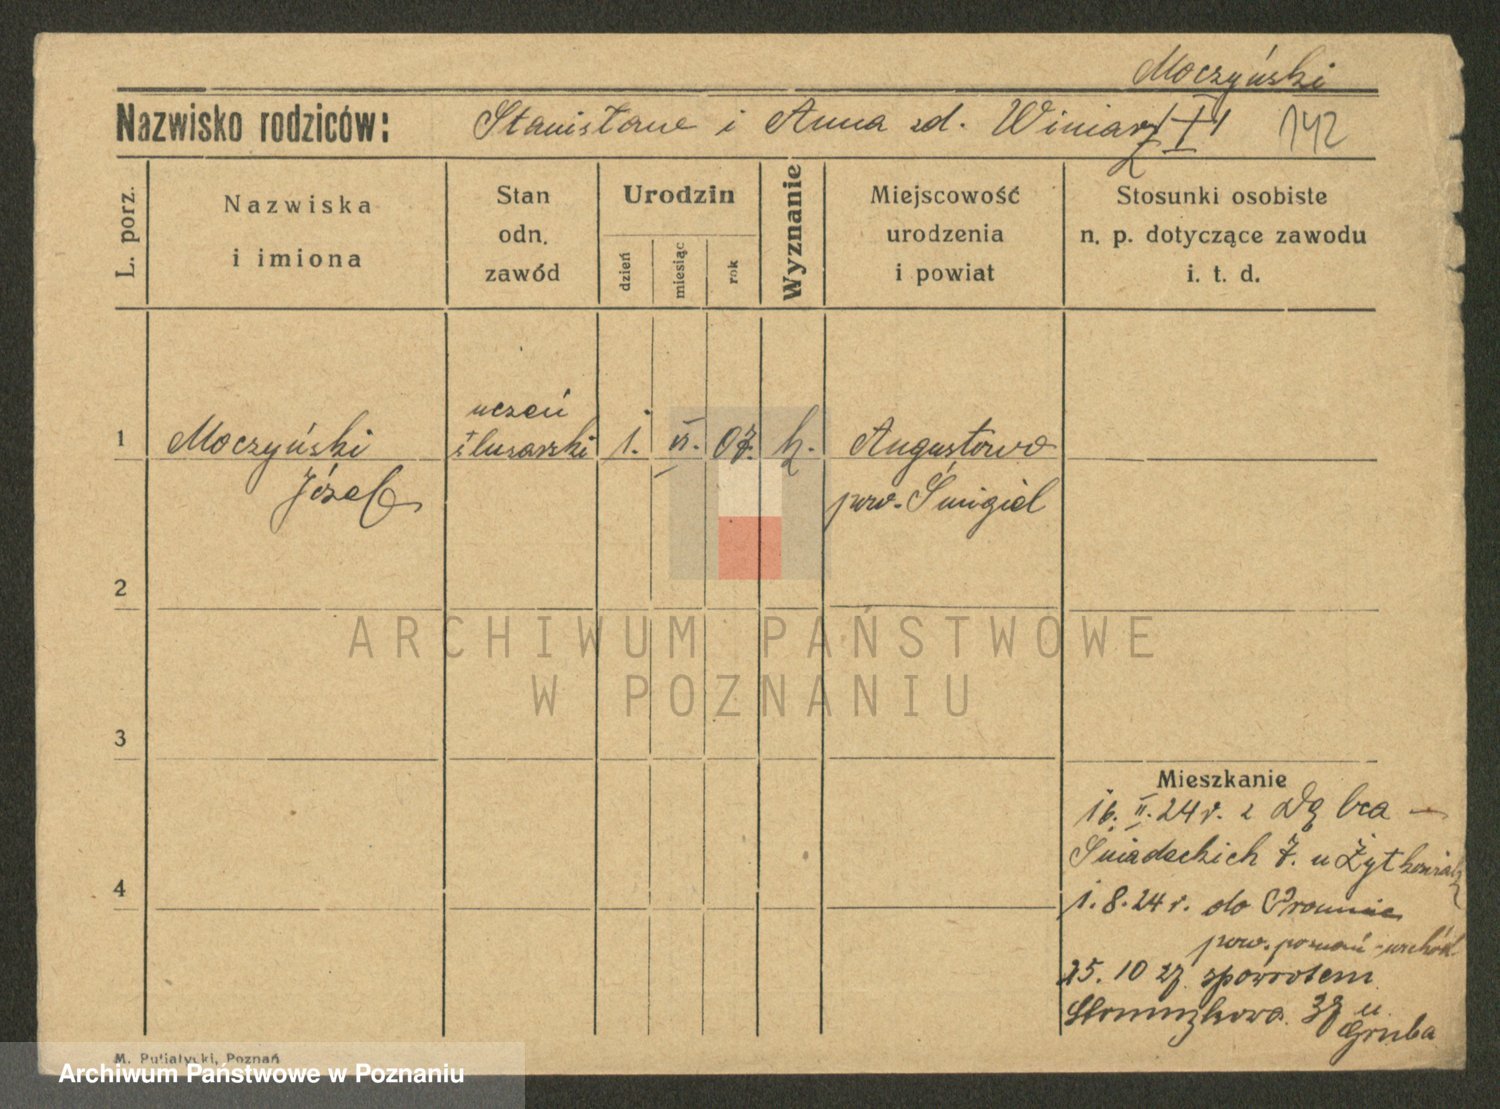 Moczyński
Nazwisko rodziców: Stanisław i Anna zd. Winiarz 142
L. porz.
Nazwiska
i imiona
Stan
odn.
zawód
Urodzin
dzień
miesiąc
rok
Wyznanie
Miejscowość
urodzenia
i powiat
Stosunki osobiste
n. p. dotyczące zawodu
i. t. d.
uczeń
1 Moczyński ślusarski 1. VI. 07. k. Augustowo
Józef pow. Śmigiel
2
ARCHIWUM PAŃSTWOWE
W POZNANIU
3
Mieszkanie
16. II. 24 r. z
Śniadeckich 7. u
4
1. 8. 24 r. do Promnic
pow. poznań-wschód
25. 10 27 spowrotem
39 u
Gruba
M. Putiatycki, Poznań
Archiwum Państwowe w Poznaniu